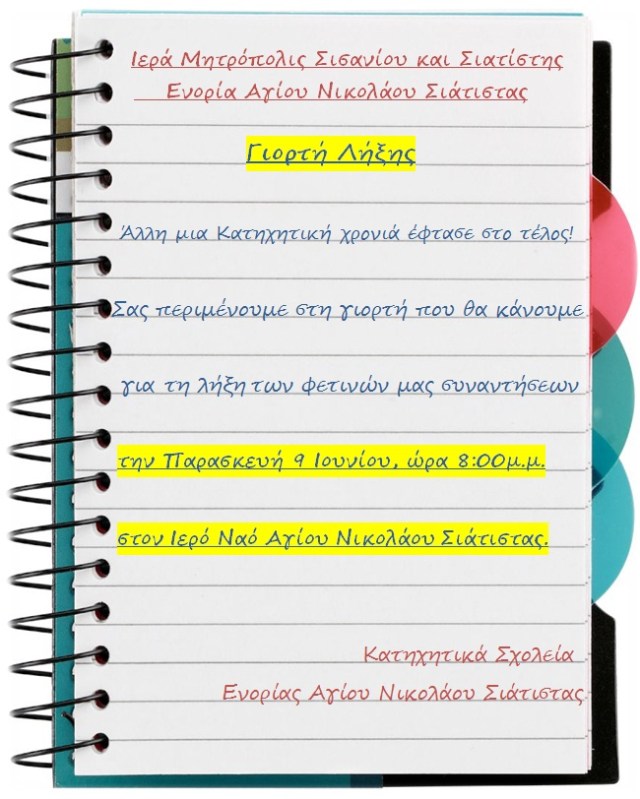 Ιερά Μητρόπολις Σισανίου και Σιατίστης
Ενορία Αγίου Νικολάου Σιάτιστας
Γιορτή Λήξης
Άλλη μια Κατηχητική χρονιά έφτασε στο τέλος!
Σας περιμένουμε στη γιορτή που θα κάνουμε
για τη λήξη των φετινών μας συναντήσεων
την Παρασκευή 9 Ιουνίου, ώρα 8:00μ.μ.
στον Ιερό Ναό Αγίου Νικολάου Σιάτιστας.
Κατηχητικά Σχολεία
Ενορίας Αγίου Νικολάου Σιάτιστας